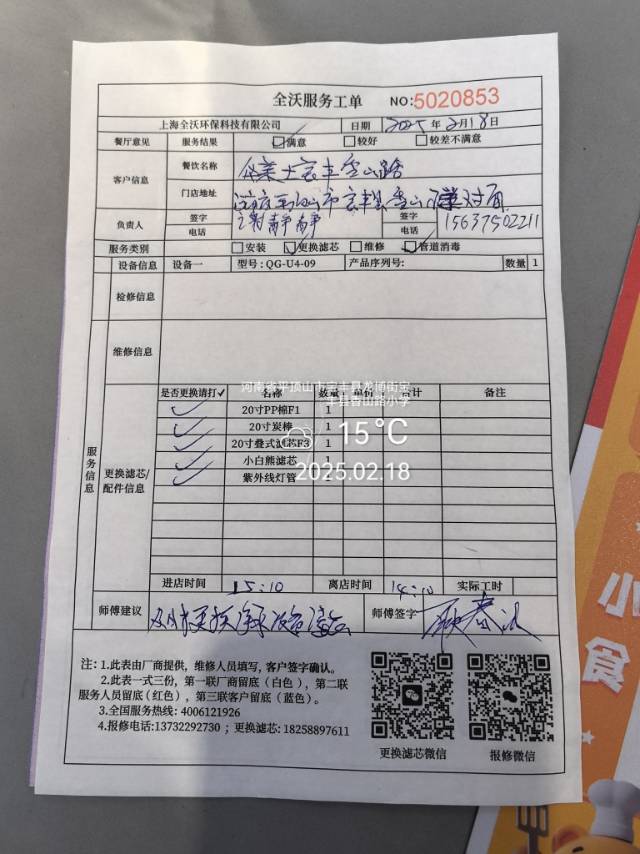 全沃服务工单 NO:5020853
上海全沃环保科技有限公司 日期 2025年2月18日
餐厅意见 服务结果 ☑满意 □较好 □较差不满意
客户信息 餐饮名称 宝丰香山路
门店地址 平顶山市宝丰县香山 对面
负责人 签字 签字
电话 电话 15637502211
服务类别 □安装 ☑更换滤芯 □维修 ☑管道消毒
设备信息 设备一 型号:QG-U4-09 产品序列号: 数量 1
检修信息
维修信息
服务信息
更换滤芯/配件信息
是否更换请打✓ 名称 数量 单价 合计 备注
✓ 20寸PP棉F1 1
✓ 20寸炭棒 1
✓ 20寸叠式滤芯F3 1
✓ 小白熊滤芯 1
✓ 紫外线灯管 1
河南省平顶山市宝丰县龙博街宝
丰县香山路小学
15℃
2025.02.18
进店时间 15:10 离店时间 14:10 实际工时
师傅建议 师傅签字
注:1.此表由厂商提供,维修人员填写,客户签字确认。
2.此表一式三份,第一联厂商留底(白色),第二联
服务人员留底(红色),第三联客户留底(蓝色)。
3.全国服务热线: 4006121926
4.报修电话:13732292730 ; 更换滤芯: 18258897611
更换滤芯微信 报修微信
小
食